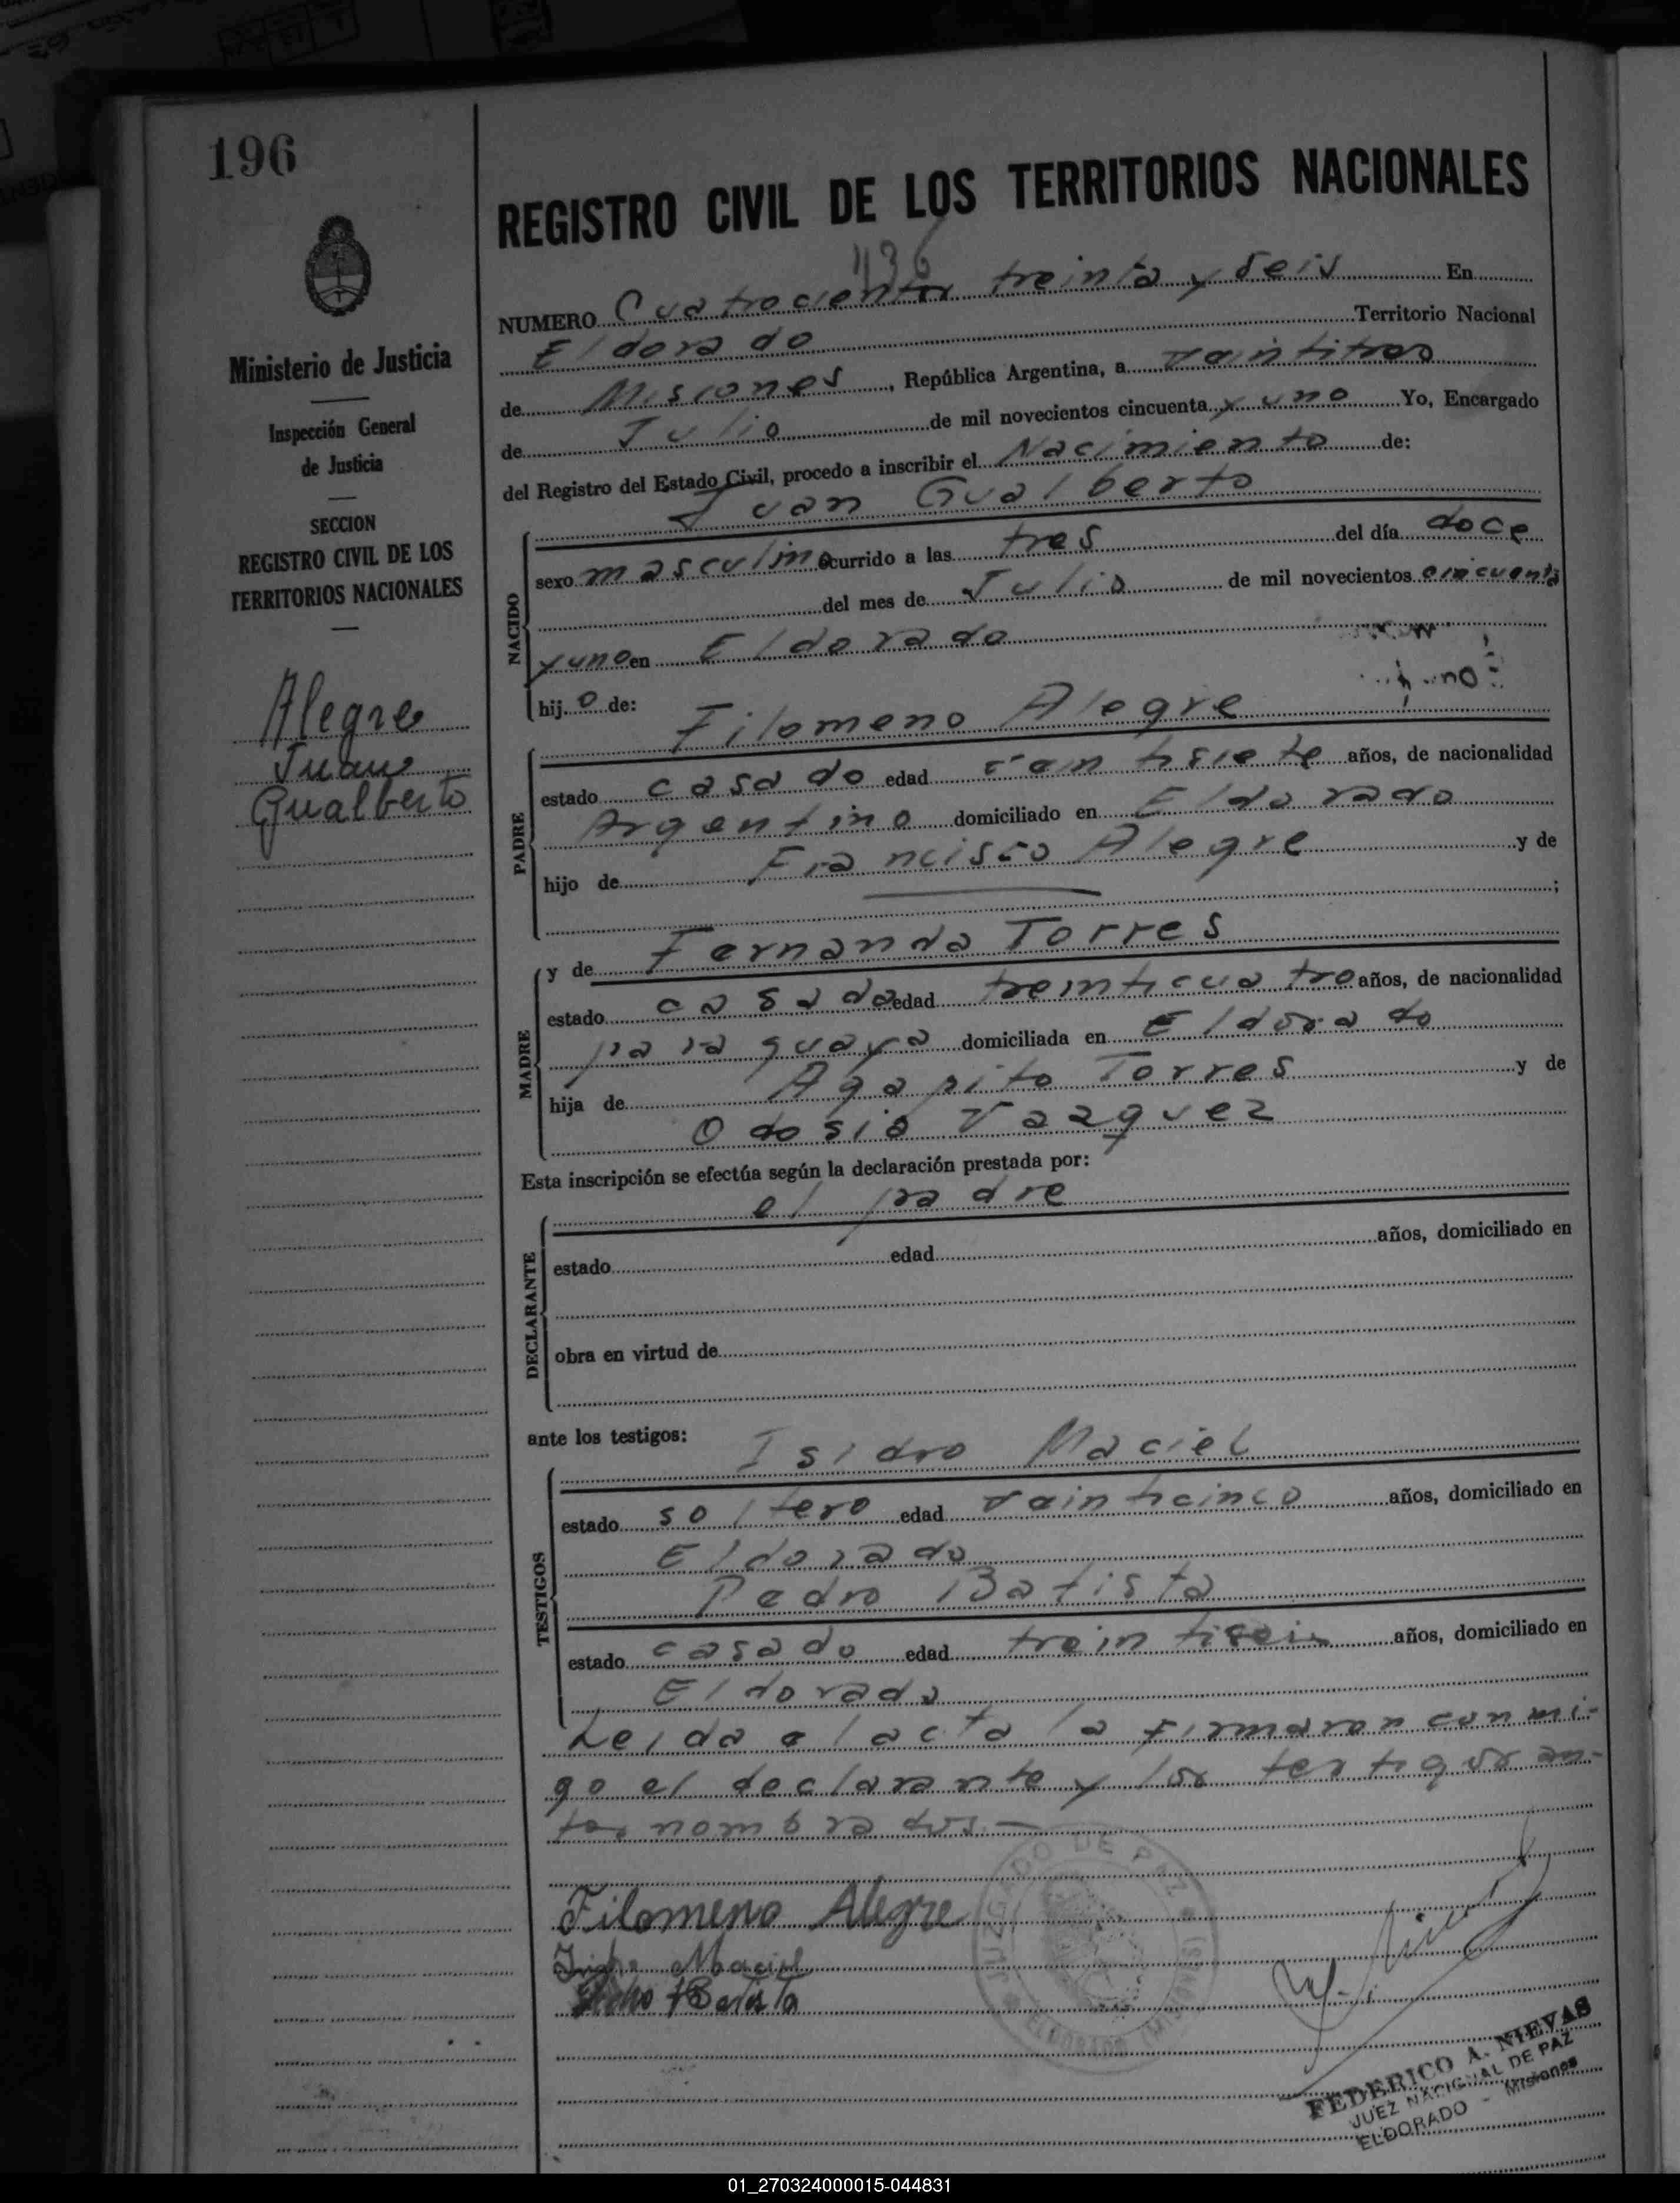 196
Ministerio de Justicia
Inspección General
de Justicia
SECCION
REGISTRO CIVIL DE LOS
TERRITORIOS NACIONALES
Alegre
Juan
Gualberto
REGISTRO CIVIL DE LOS TERRITORIOS NACIONALES
436
NUMERO Cuatrocientos treinta y seis En
Eldorado Territorio Nacional
de Misiones, República Argentina, a vaintitres
de Julio de mil novecientos cincuenta y uno Yo, Encargado
del Registro del Estado Civil, procedo a inscribir el Nacimiento de:
Juan Gualberto
NACIDO
sexo masculino ocurrido a las tres del día doce
del mes de Julio de mil novecientos cincuenta
y uno en Eldorado
hijo de:
Filomeno Alegre
PADRE
estado casado edad vaintisiete años, de nacionalidad
Argentino domiciliado en Eldorado
hijo de Francisco Alegre y de
;
y de Fernanda Torres
MADRE
estado casada edad treinticuatro años, de nacionalidad
paraguaya domiciliada en Eldorado
hija de Agapito Torres y de
Odosia Vazquez
Esta inscripción se efectúa según la declaración prestada por:
el padre
DECLARANTE
estado edad años, domiciliado en
obra en virtud de
ante los testigos:
Isidro Maciel
TESTIGOS
estado soltero edad vainticinco años, domiciliado en
Eldorado
Pedro Batista
estado casado edad treintiseis años, domiciliado en
Eldorado
Leida el acta la firmaron conmi-
go el declarante y los testigos an-
tes nombrados.—
Filomeno Alegre
Maciel
Batista
JUZGADO DE PAZ
ELDORADO (MISIONES)
FEDERICO A. NIEVAS
JUEZ NACIONAL DE PAZ
ELDORADO - Misiones
01_270324000015-044831